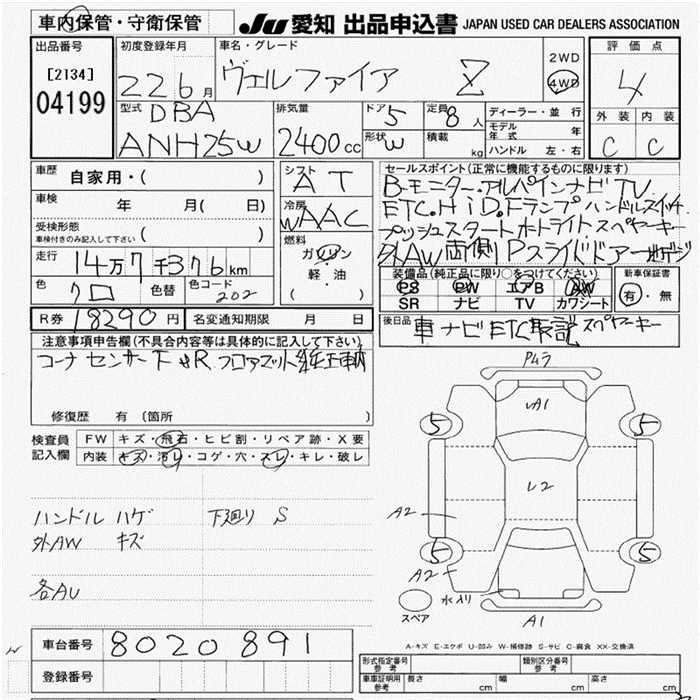 車内保管・守衛保管
JU 愛知 出品申込書 JAPAN USED CAR DEALERS ASSOCIATION
出品番号
[2134]
04199
初度登録年月
22 6月
車名・グレード
ヴェルファイア Z
2WD
4WD
評価点
4
外装 内装
C C
型式
DBA
ANH25W
排気量
2400cc
ドア 5
形状 W
定員 8人
積載 kg
ディーラー・並行
モデル年式 年
ハンドル 左・右
車歴
自家用・( )
車検 年 月( 日)
受検形態
車検付きのみ記入して下さい ( )
走行 14万7千376km
色 クロ 色替 色コード 202
シフト AT
冷房 WAAC
燃料
ガソリン
軽・油
( )
セールスポイント(正常に機能するものに限ります)
B-モニター.アルパインナビTV.
ETC.HiD.Fランプハンドルスイッチ
プッシュスタートオートライト.スペヤーキー
外AW 両側Pスライドドアー
装備品(純正品に限り○をつけてください)
PS PW エアB AW
SR ナビ TV カワシート
新車保証書
有・無
R券 18290円 名変通知期限 月 日
後日品 車ナビETC取説スペヤーキー
注意事項申告欄(不具合内容等は具体的に記入して下さい)
コーナーセンサー F R フロアマット純正
修復歴 有(箇所 )
検査員記入欄
FW キズ・飛石・ヒビ割・リペア跡・X要
内装 キズ・汚レ・コゲ・穴・スレ・キレ・破レ
ハンドル ハゲ 下廻り S
外AW キズ
各AU
Pムラ
A1
5 5
L2
A2
5 5
A2
水入り
スペア
A1
A-キズ E-エクボ U-凹み W-補修跡 S-サビ C-腐食 XX-交換済
車台番号 8020891
登録番号
形式指定番号 参考
類別区分番号 参考
車庫証明用 参考 長さ cm 幅 cm 高さ cm